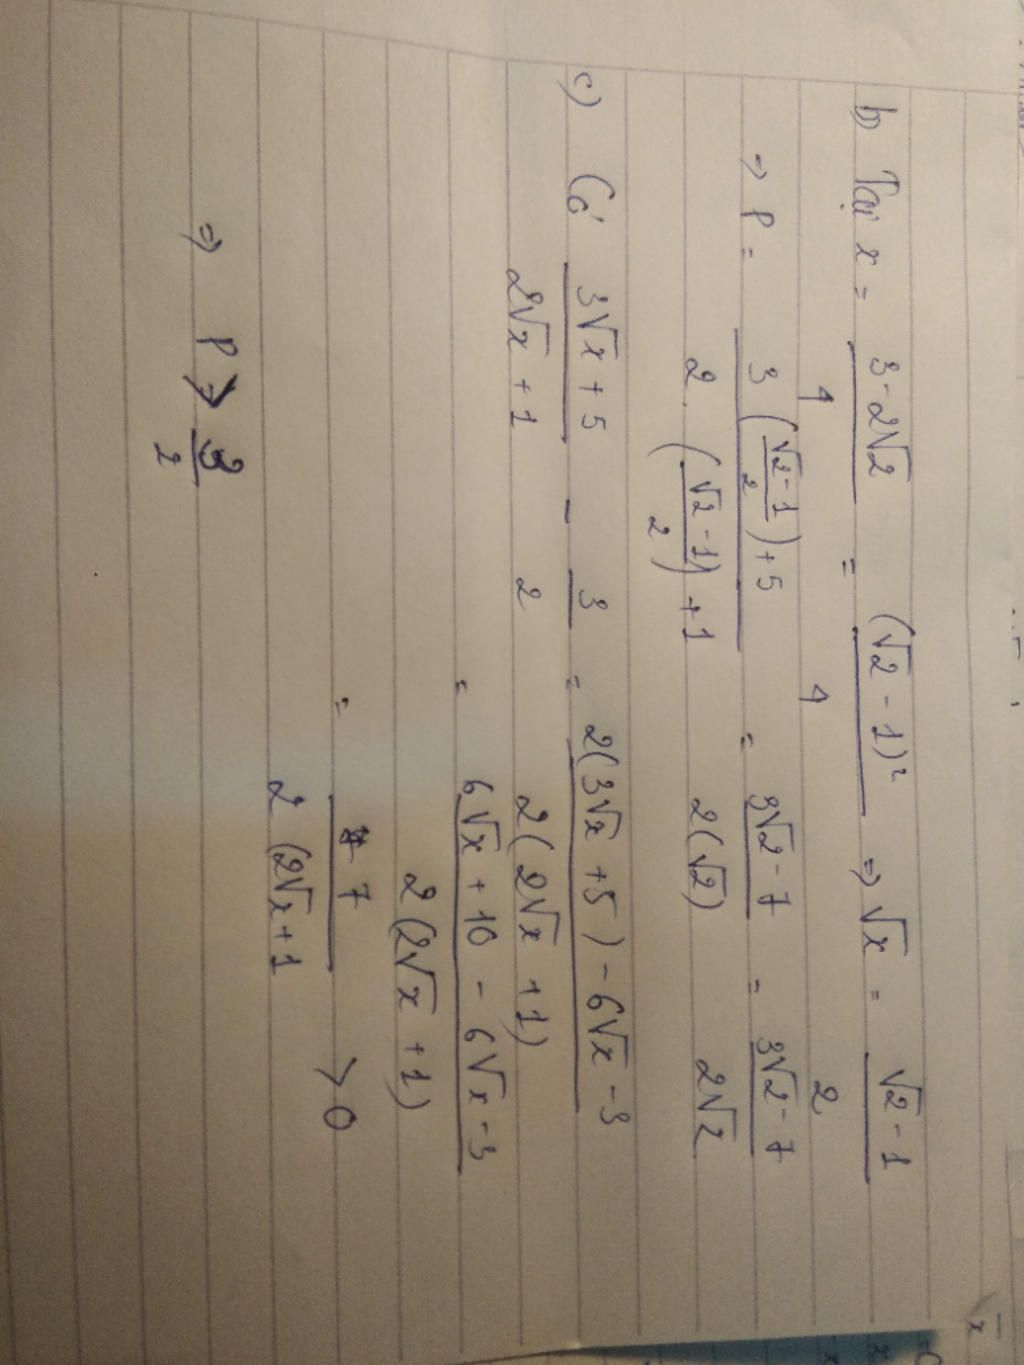 b) Tại x = \frac{3-2\sqrt{2}}{4} = \frac{(\sqrt{2}-1)^2}{4} => \sqrt{x} = \frac{\sqrt{2}-1}{2}
=> P = \frac{3(\frac{\sqrt{2}-1}{2})+5}{2.(\frac{\sqrt{2}-1}{2})+1} = \frac{3\sqrt{2}-7}{2(\sqrt{2})} = \frac{3\sqrt{2}-7}{2\sqrt{2}}
c) Có \frac{3\sqrt{x}+5}{2\sqrt{x}+1} - \frac{3}{2} = \frac{2(3\sqrt{x}+5)-6\sqrt{x}-3}{2(2\sqrt{x}+1)}
= \frac{6\sqrt{x}+10-6\sqrt{x}-3}{2(2\sqrt{x}+1)}
= \frac{7}{2(2\sqrt{x}+1} > 0
=> P > \frac{3}{2}